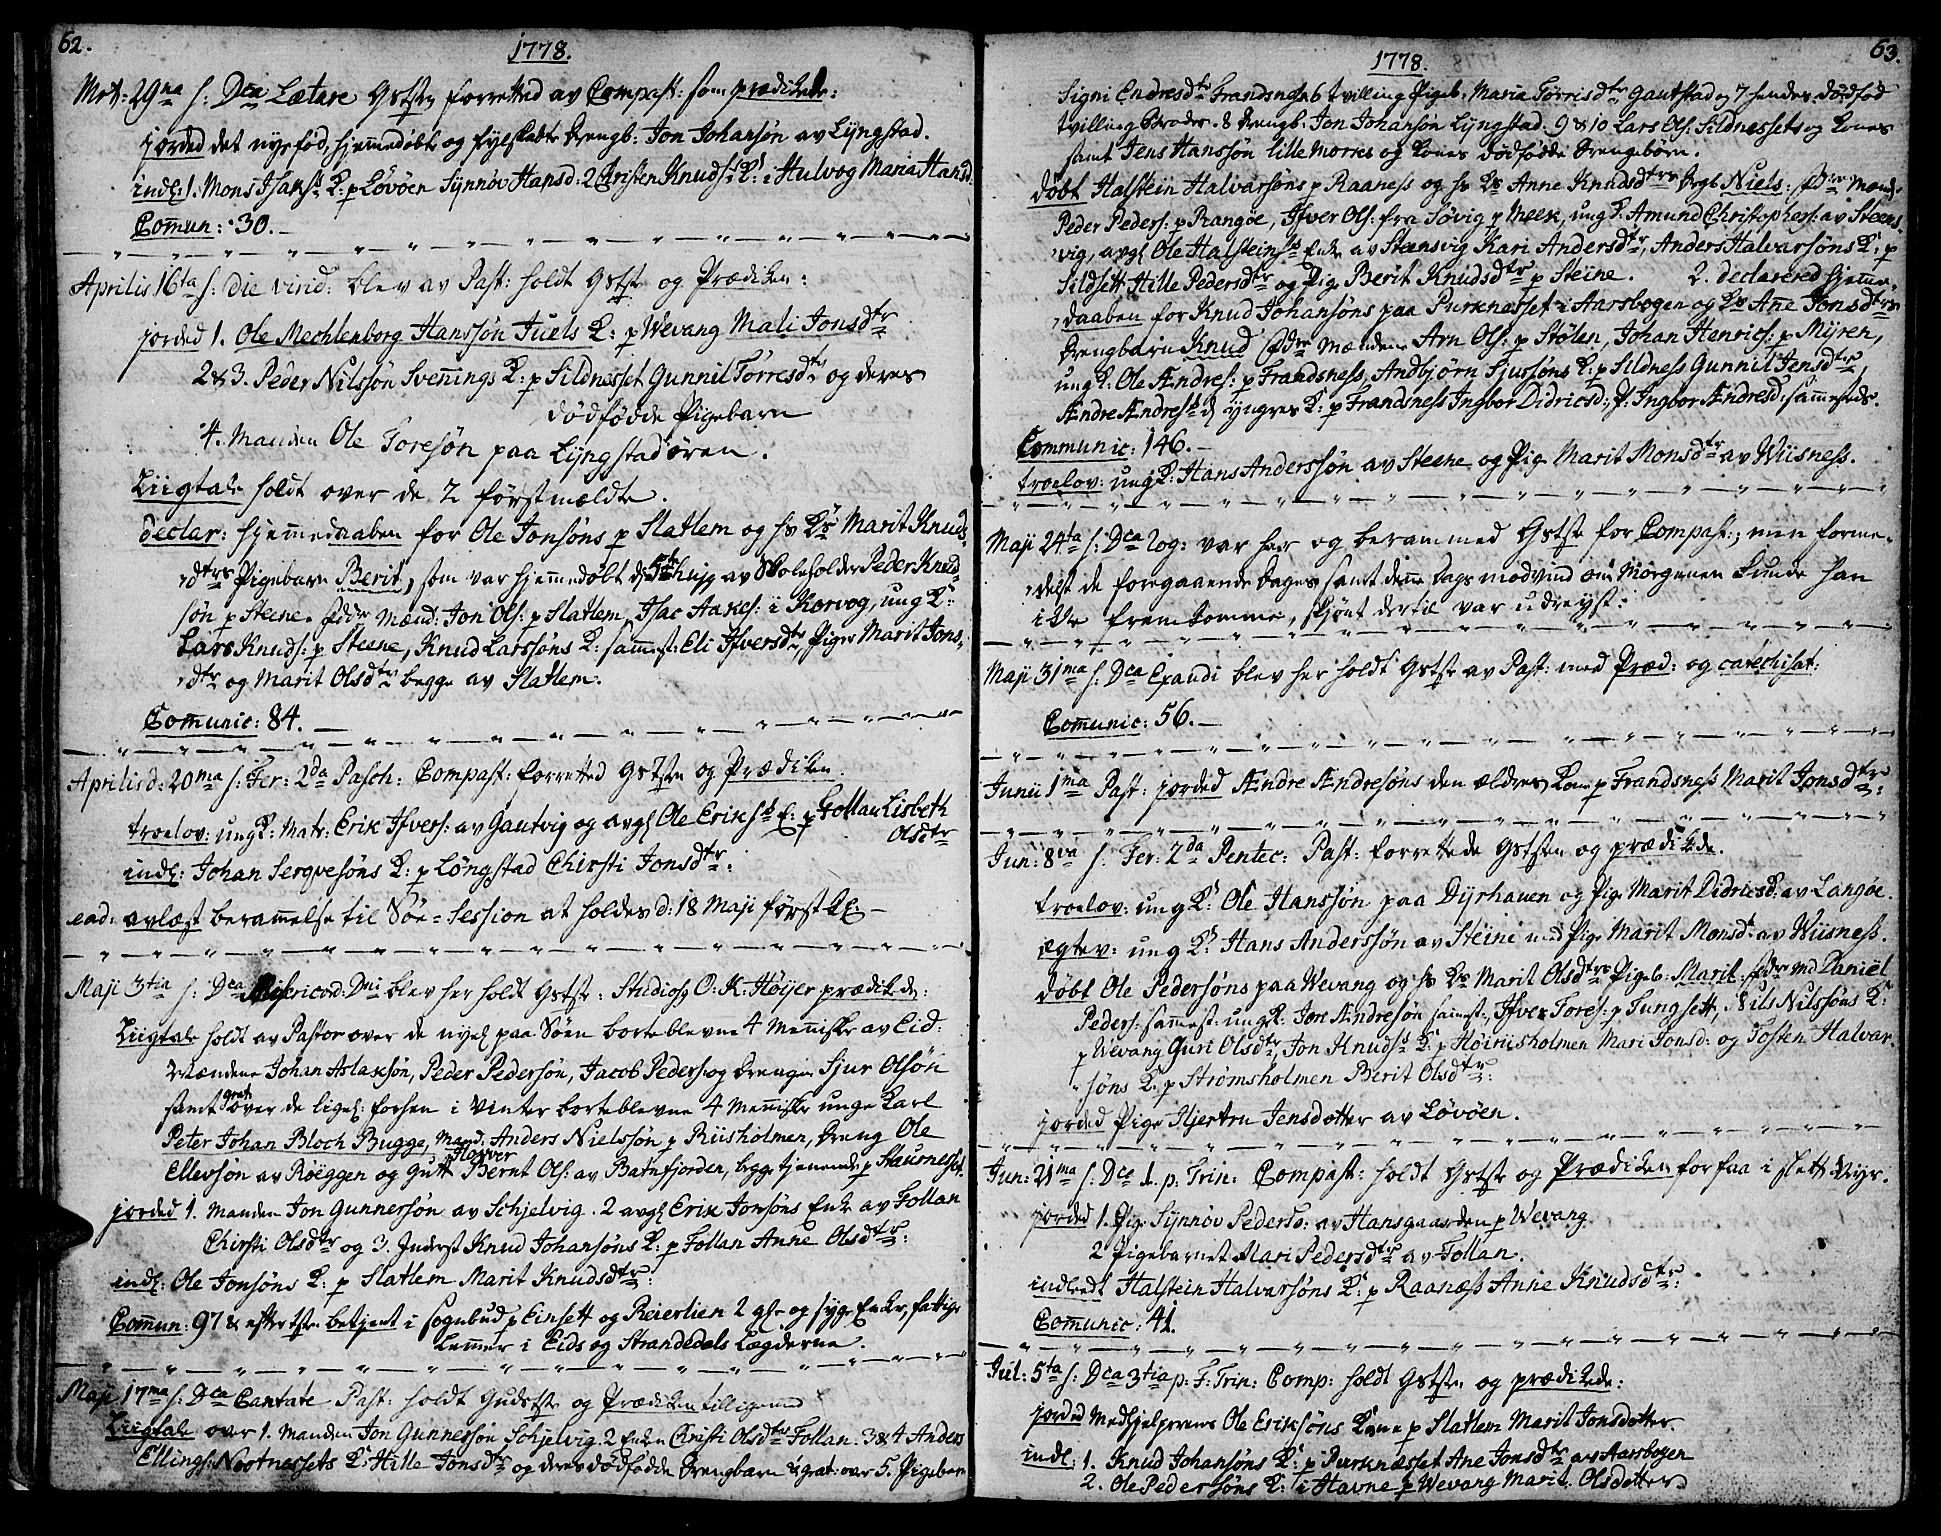 62.
1778.
Mrt: 29na s: Dca Lætare Gstste forretted av Compast: som prædikede:
jorded det nysfød, hjemmedøbt og Drengb: Jon Johansøn av Lyngstad.
indl: 1. Mons Isahs: K: p Løvøen Synnøv Hansd: 2 Christen Knuds: K: i Hulvog Maria Hansd.
Comun: 30.
Aprilis 16ta s: die virid: blev av Past: holdt Gstste og Prædiken:
jorded 1. Ole Mechlenborg Hanssøn Juels K: p Wevang Mali Jonsdtr
2 & 3. Peder Nilssøn Svenings K: p Sildnesset Gunnil Torresdtr og deres
dødfødde Pigebarn
4. Manden Ole Toresøn paa Lyngstadøren.
Liigtale holdt over de 2 førstmældte.
declar: hjemmedaaben for Ole Jonsøns p Slatlem og hs Ks Marit Knuds
dtrs Pigebarn Berit, som var hjemmedøbt av Skoleholder Peder Knud
søn p Steene. fddr Mænd: Jon Ols: p Slatlem, Isac Aakes: i Korvog, ung K:
Lars Knuds: p Steene, Knud Larssøns K: sammest: Eli Ifversdtr, Piger Marit Jons
dtr og Marit Olsdtr begge av Slatlem.
Comunic: 84.
Aprilis d: 20ma s: Fer: 2da Pasch: Compast: forretted Gstste og Prædiken.
troelov: ung K: Matr: Erik Ifvers: av Gautvig og avgl Ole Eriks: E: p Follan Lisbeth
Olsdtr
indl: Johan Serqvesøns K: p Løngstad Chirsti Jonsdtr:
ead: avlæst berammelse til Søe-Session at holdes d: 18 Maji førstk
Maji 3tia s: Dca Misericod: Dni blev her holdt Gstste: Studios O: K: Høijer prædikede:
Liigtale holdt av Pastor over de nyel paa Søen borteblevne 4 Mennisker av Eid:
Mændene Johan Aslaksøn, Peder Pedersøn, Jacob Peders og Drengen Sjur Olsøn
samt grat over de ligel: forhen i Vinter borteblevne 4 Mennisker unge Karl
Peter Johan Bloch Bugge, Mand: Anders Nielssøn p Riisholmen, Dreng Ole
Ellevsøn av Røeggen og Gutt Havver Bernt Ols: av Batnfjorden, begge tjenende p Staurneset
jorded 1. Manden Jon Gunnersøn av Schjelvig. 2 avgl Erik Jonsøns Enke av Follan
Chirsti Olsdtr og 3. Inderst Knud Johansøns K: p Follan Anne Olsdtr:
indl: Ole Jonsøns K: p Slatlem Marit Knudsdtr:
Comun: 97 & efter betjent i sognebud p Einsett og Reiertien 2 gle og syge Enker, fattige
Lemmer i Eids og Strandedals Lægderne.
Maji 17ma s: Dca Cantate Past: holdt Gudstste og Prædiken tilligemed
Liigtale over 1. Manden Jon Gunnersøn Schjelvig. 2 Enken Chirsti Olsdtr Follan. 3 & 4 Anders
Ellings: Nootnessets K: Hille Jonsdtr og deres dødfødde Drengbarn & grat: over 5. Pigebarn
63.
1778.
Signi Endresdtr Frandsnes 6 tvilling Pigeb: Maria Torrisdtr Gautstad og 7 hendes dødfød
tvilling Broder. 8 Drengb. Jon Johansøn Lyngstad. 9 & 10 Lars Ols: Sildnessets og Kones
samt Jens Hanssøn lille Morkes og Kones dødfødde Drengebørn.
døbt Halstein Halvarsøns p Raaness og hs Ks Anne Knudsdtrs Drgb Niels: fddre Mænd:
Peder Peders: p Rangøe, Ifver Ols: fra Søvig p Meek, ung K: Amund Christophers: av Steens
vig, avgl Ole Halsteins: Enke av Steensvig Kari Andersdtr, Anders Halvarsøns K: p
Sildsett Hille Pedersdtr og Pig: Berit Knudsdtr p Steine. 2. declarered hjemme
daaben for Knud Johansøns paa Purknesset i Aarsbogen og Ks Ane Jonsdtrs
Drengbarn Knud fddre Mændene Arn Ols: p Stølen, Johan Henrics: p Myren,
ung K: Ole Ændres: p Frandsness, Andbjørn Sjussøns K: p Sildness Gunnil Jensdtr,
Ændre Ændres: d yngres K: p Frandsness Ingbor Didricsd:, P: Ingbor Ændresd: sammesteds.
Communic: 146.
troelov: ung K: Hans Anderssøn av Steene og Pig: Marit Monsdtr av Wiisness.
Maji 24ta s: Dca Rog: var her og berammed Gstste for Compast:, men forme
delst de foregaaende dages samt denne dags modvind om Morgenen kunde han
ikke fremkomme, skjønt dertil var udreyst:
Maji 31ma s: Dca Exaudi blev her holdt Gstste av Past: med Præd: og catechisat:
Comunic: 56.
Junii 1ma Past: jorded Ændre Ændresøns den ældres Kone p Frandsness Marit Jonsdtr:
Jun: 8va s: Fer: 2da Pentec: Past: forrettede Gstste og prædikede.
troelov: ung K: Ole Hanssøn paa Dyrhauen og Pige Marit Didricsd: av Langøe.
egtev: ung K: Hans Anderssøn av Steine med Pige Marit Monsd: av Wiisness.
døbt Ole Pedersøns paa Wevang og hs Ks Marit Olsdtrs Pigeb: Marit: fddre md Daniel
Peders: sammest: ung K: Tore Ændresøn sammest:, Ifver Tores: p Tungsett, Nils Nilssøns K:
p Wevang Guri Olsdtr, Jon Knuds: K: p Høinisholmen Mari Jonsd: og Tosten Halvar
søns K: p Strømsholmen Berit Olsdtr:
jorded Pige Hjertru Jensdotter av Løvøen.
Jun: 21ma s: Dca 1. p: Trin: Compast: holdt Gstste og Prædiken for faa i slett Veyr.
jorded 1. Pige Synnøv Pedersd: av Hansgaarden p Wevang
2 Pigebarnet Mari Pedersdtr av Follan.
indleedt Halstein Halvarsøns K: p Raaness Anne Knudsdtr:
Comunic: 41.
Jul: 5ta s: Dca 3tia p: F: Trin: Comp: holdt Gstste og prædikede:
jorded Medhjelperens Ole Eriksøns Kone p Slatlem Marit Jonsdotter.
indl: 1. Knud Johansøns K: p Purknæsset Ane Jonsdtr av Aarsbogen
2. Ole Pedersøns K: i Havne p Wevang Marit Olsdotter